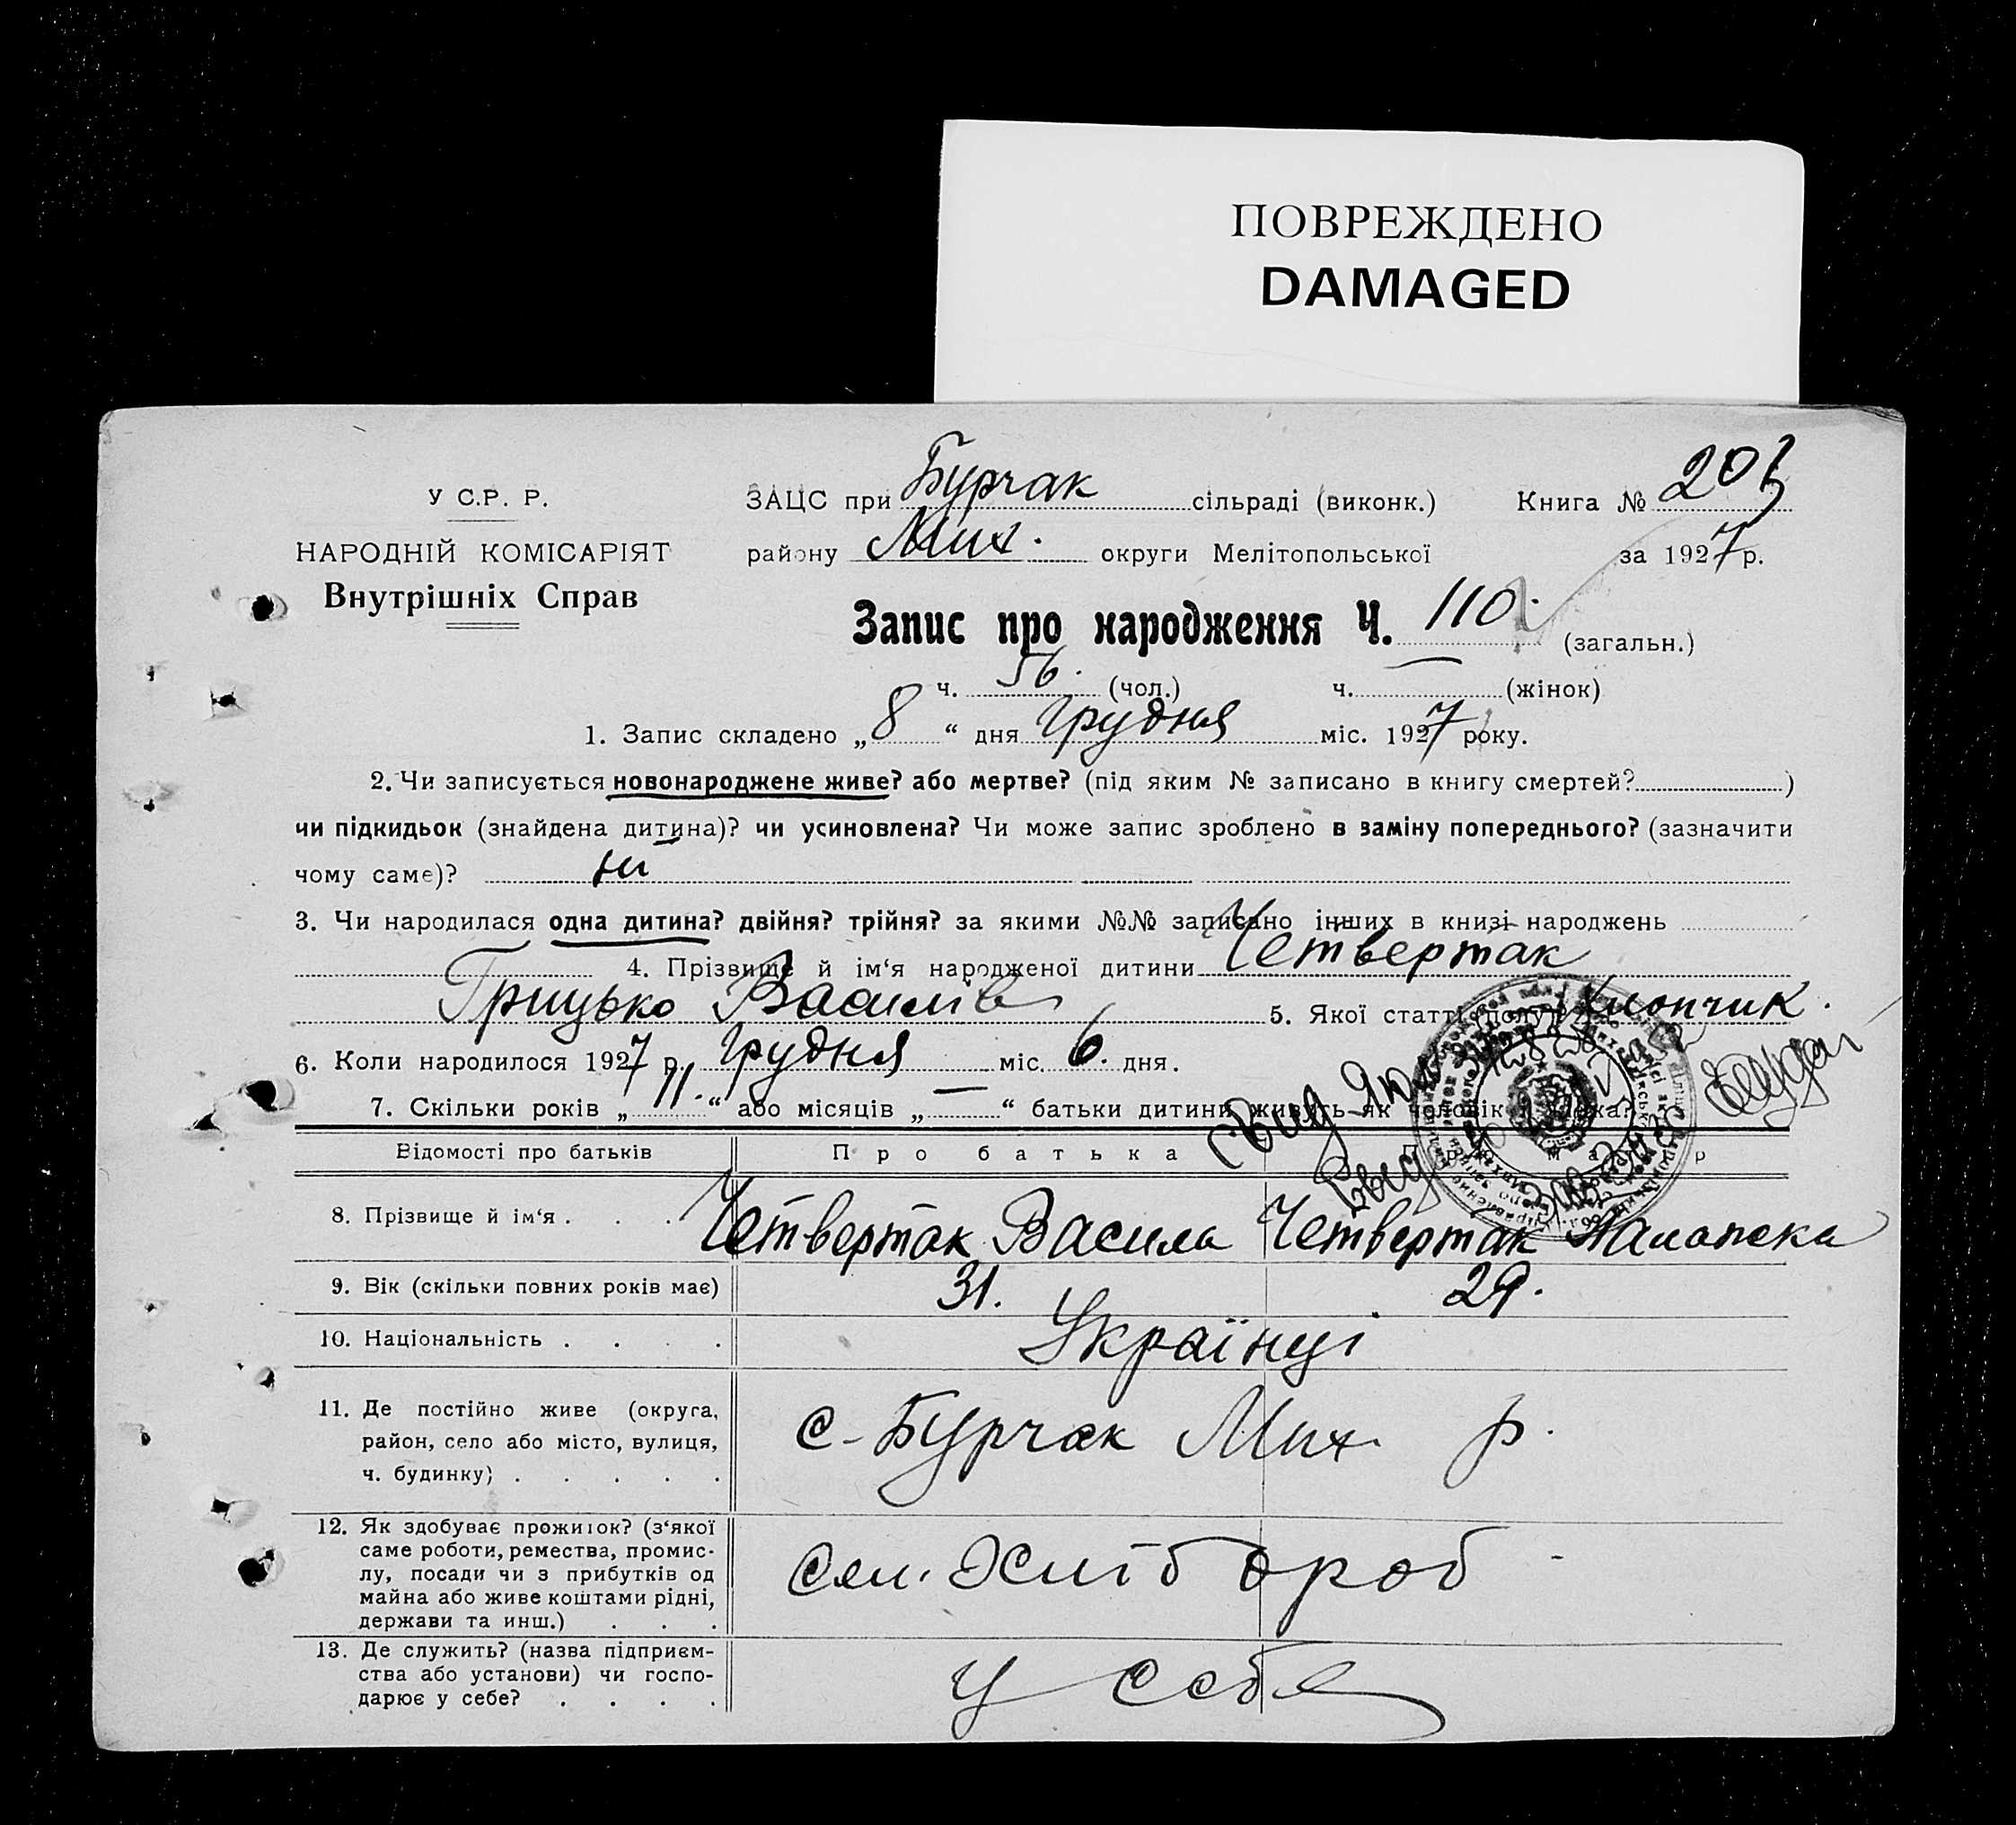 ПОВРЕЖДЕНО
DAMAGED
У С.Р. Р.
НАРОДНІЙ КОМІСАРІЯТ
Внутрішніх Справ
ЗАЦС при Бурчак сільраді (виконк.) Книга №
району Мих. округи Мелітопольської за 1927 р.
Запис про народження Ч. 110. (загальн.)
ч. 56. (чол.) ч. — (жінок)
1. Запис складено „ 8 “ дня грудня міс. 1927 року.
2. Чи записується новонароджене живе? або мертве? (під яким № записано в книгу смертей? )
чи підкидьок (знайдена дитина)? чи усиновлена? Чи може запис зроблено в заміну попереднього? (зазначити
чому саме)? ні
3. Чи народилася одна дитина? двійня? трійня? за якими №№ записано інших в книзі народжень
4. Прізвище й ім‘я народженої дитини Четвертак
Грицько Василів 5. Якої статті (полу)? Хлопчик.
6. Коли народилося 1927 р. грудня міс. 6. дня.
7. Скільки років „ 11. “ або місяців „ — “ батьки дитини живуть як чоловік
Відомості про батьків
Про батька
8. Прізвище й ім‘я . . . Четвертак Василь Четвертак
9. Вік (скільки повних років має) 31. 29.
10. Національність . . . . Українці
11. Де постійно живе (округа,
район, село або місто, вулиця,
ч. будинку) . . . . .
с-Бурчак Мих. р.
12. Як здобуває прожиток? (з‘якої
саме роботи, ремества, промис-
лу, посади чи з прибутків од
майна або живе коштами рідні,
держави та инш.) . . .
Сел. Хлібороб -
13. Де служить? (назва підприєм-
ства або установи) чи госпо-
дарює у себе? . . . .
у себе